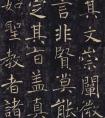 其文崇闡微
言非賢莫能
定其旨蓋真
如聖教者諸